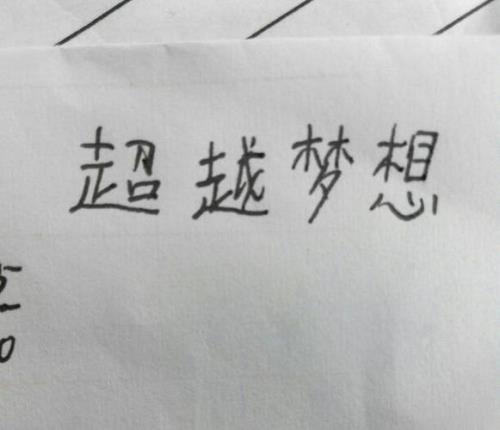 超越梦想